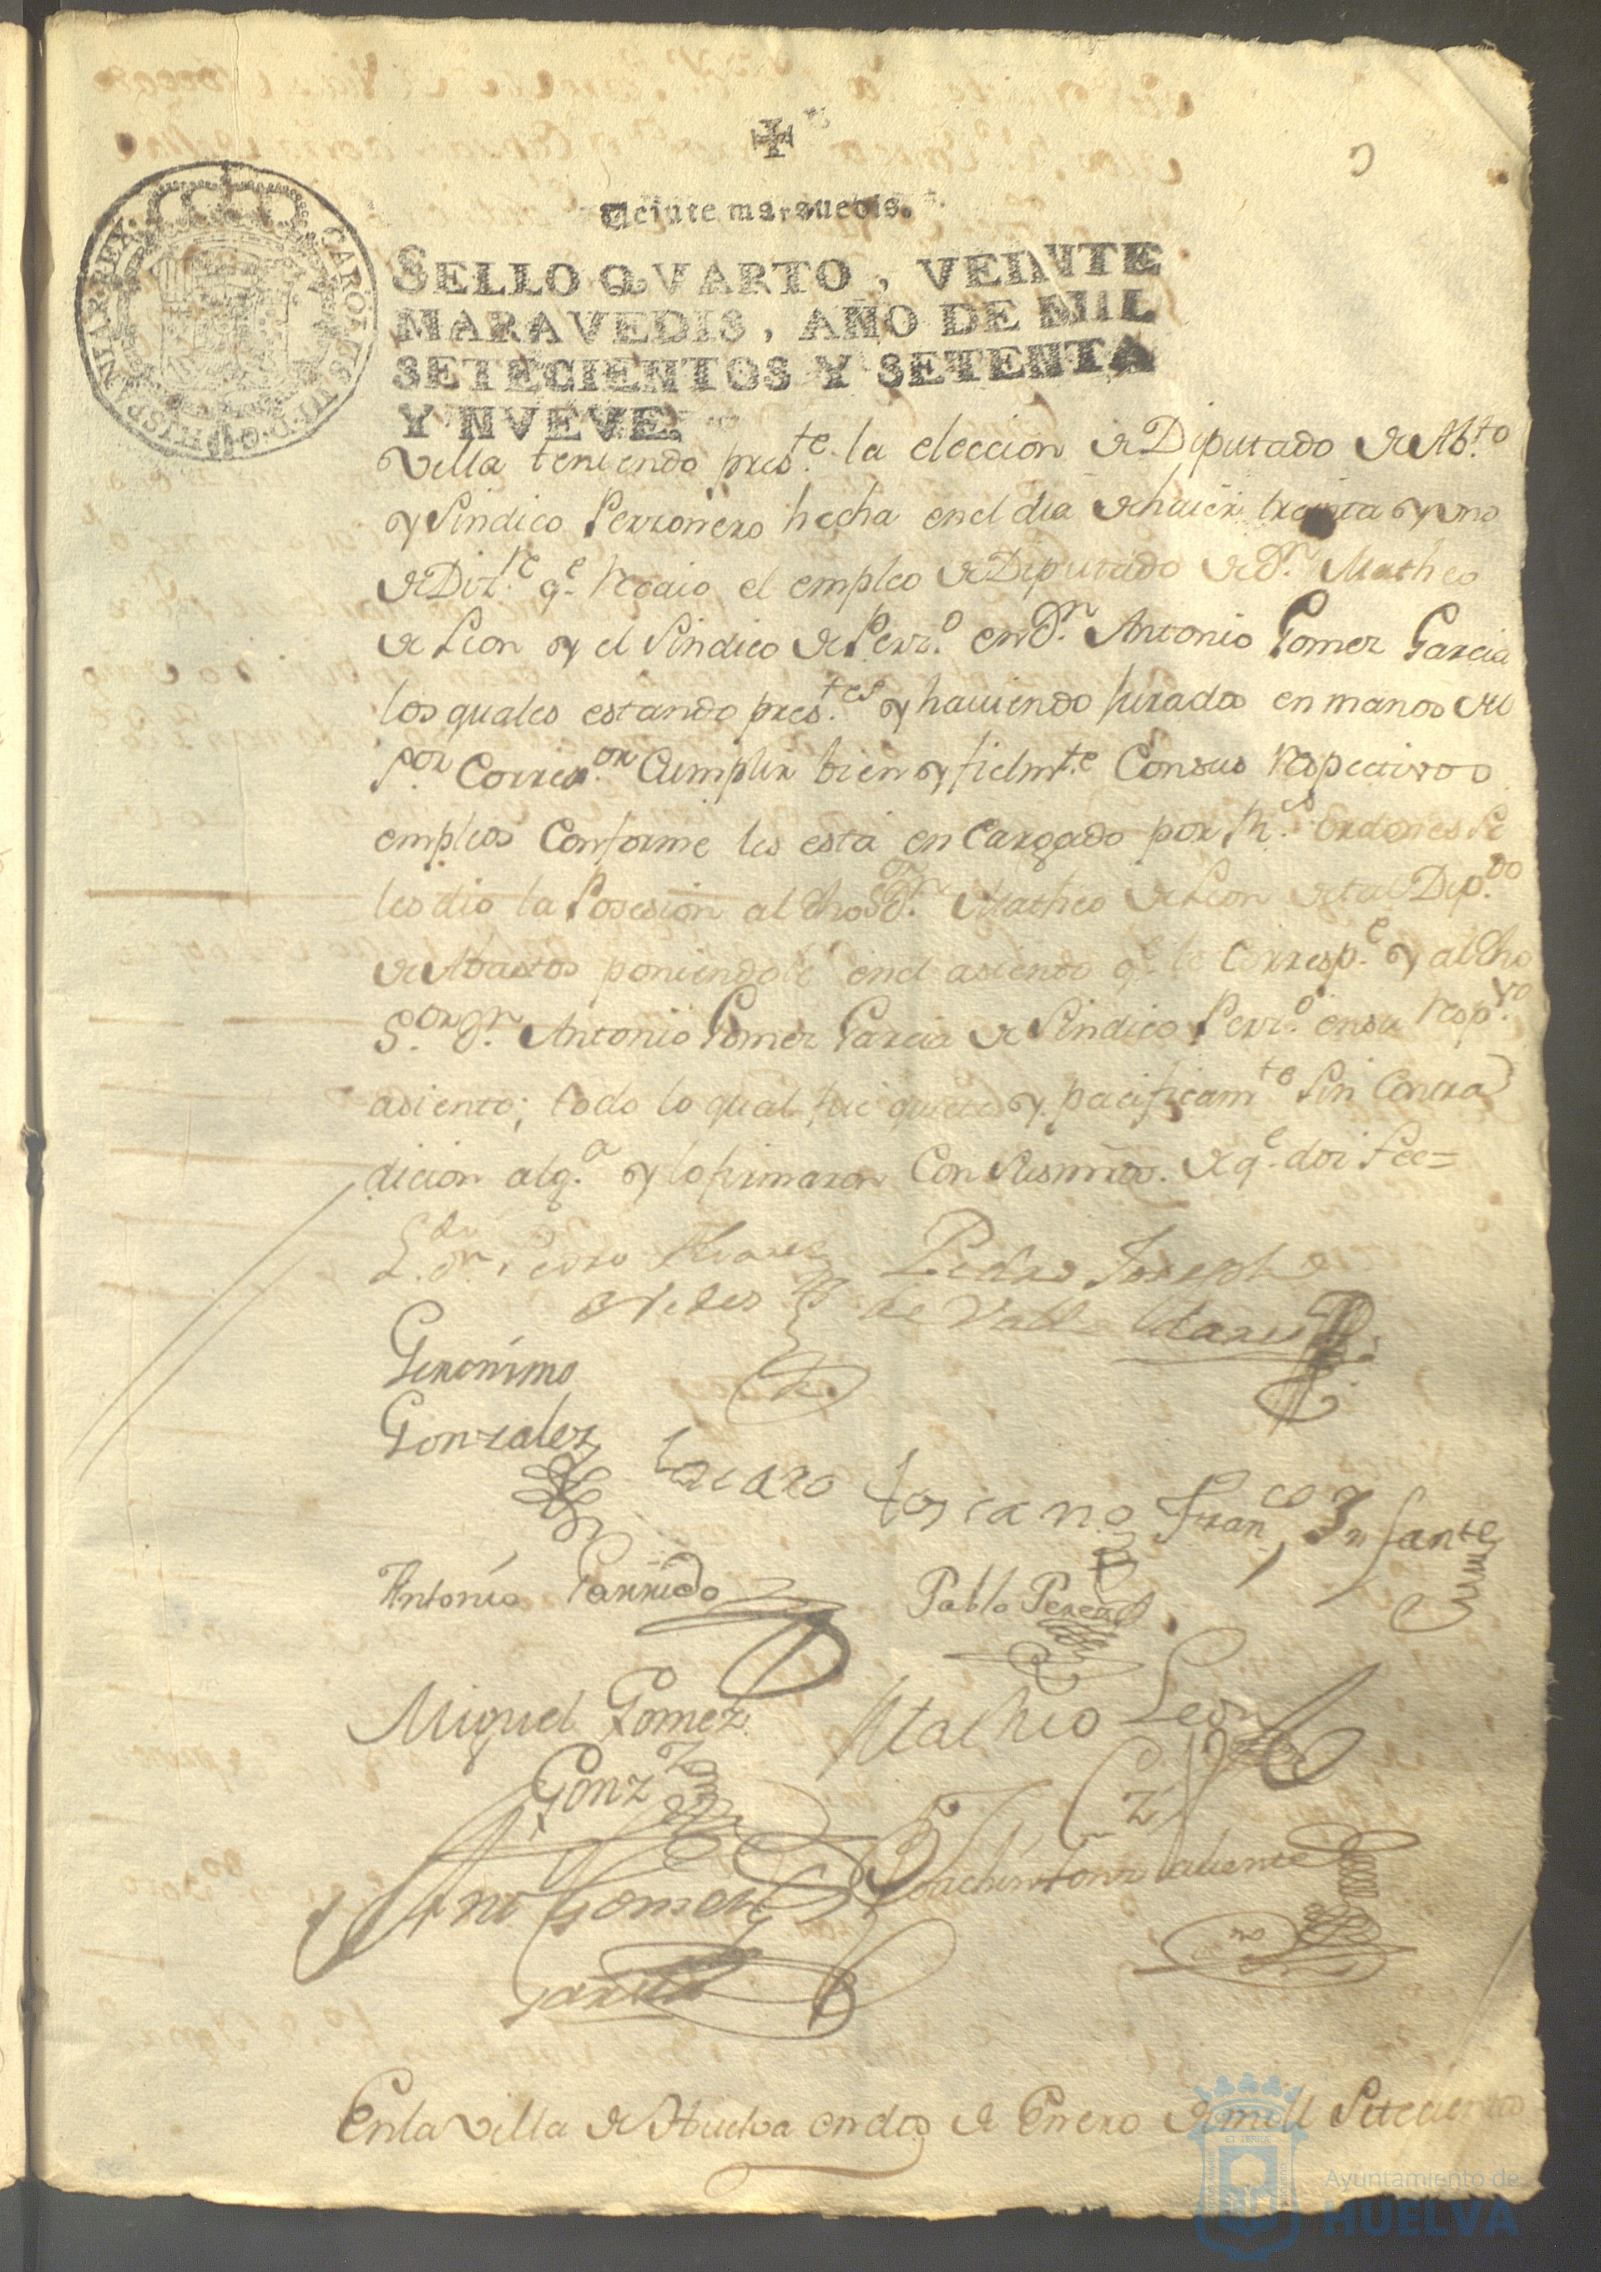 Veinte marauedis.
SELLO QVARTO, VEINTE
MARAVEDIS, AÑO DE MIL
SETECIENTOS Y SETENTA
Y NVEVE.
CAROLUS III D.G. HISPANIAR. REX.
villa teniendo pres.te la eleccion de Diputado de Ab.to
y Sindico Perzonero hecha en el dia de haier treinta y uno
de Diz.re q.e recaio el empleo de Diputado de Dn. Matheo
de Leon y el Sindico de Perz.o en Dn. Antonio Gomez Garcia
los quales estando pres.tes y haviendo jurado en manos del
S.or Correx.or Cumplir bien y fielm.te Con sus respectivos
empleos Conforme les está encargado por R.s ordenes se
les dio la Posesion al dho S.or Dn. Matheo de Leon de tal Dip.do
de Abastos poniendole en el asiento q.e le corresp.e y al dho
S.or Dn. Antonio Gomez Garcia de Sindico Perz.o en su resp.vo
asiento; todo lo qual fue quieta y pacificam.te sin contra
dicion alg.a y lo firmaron Con Sus mrds. de q.e doi fee=
L.do Dn. Pedro Alvarez Pedro Joseph
de Valladares
Geronimo
Gonzalez
Lazaro toscano Fran.co Infante
Antonio Garrido Pablo Perez
Miguel Gomez Matheo Leon
Gonz.z
Ant.o Gomez
Garcia
En la villa de Huelva en dos de Enero de mill Setecientos
Ayuntamiento de
HUELVA